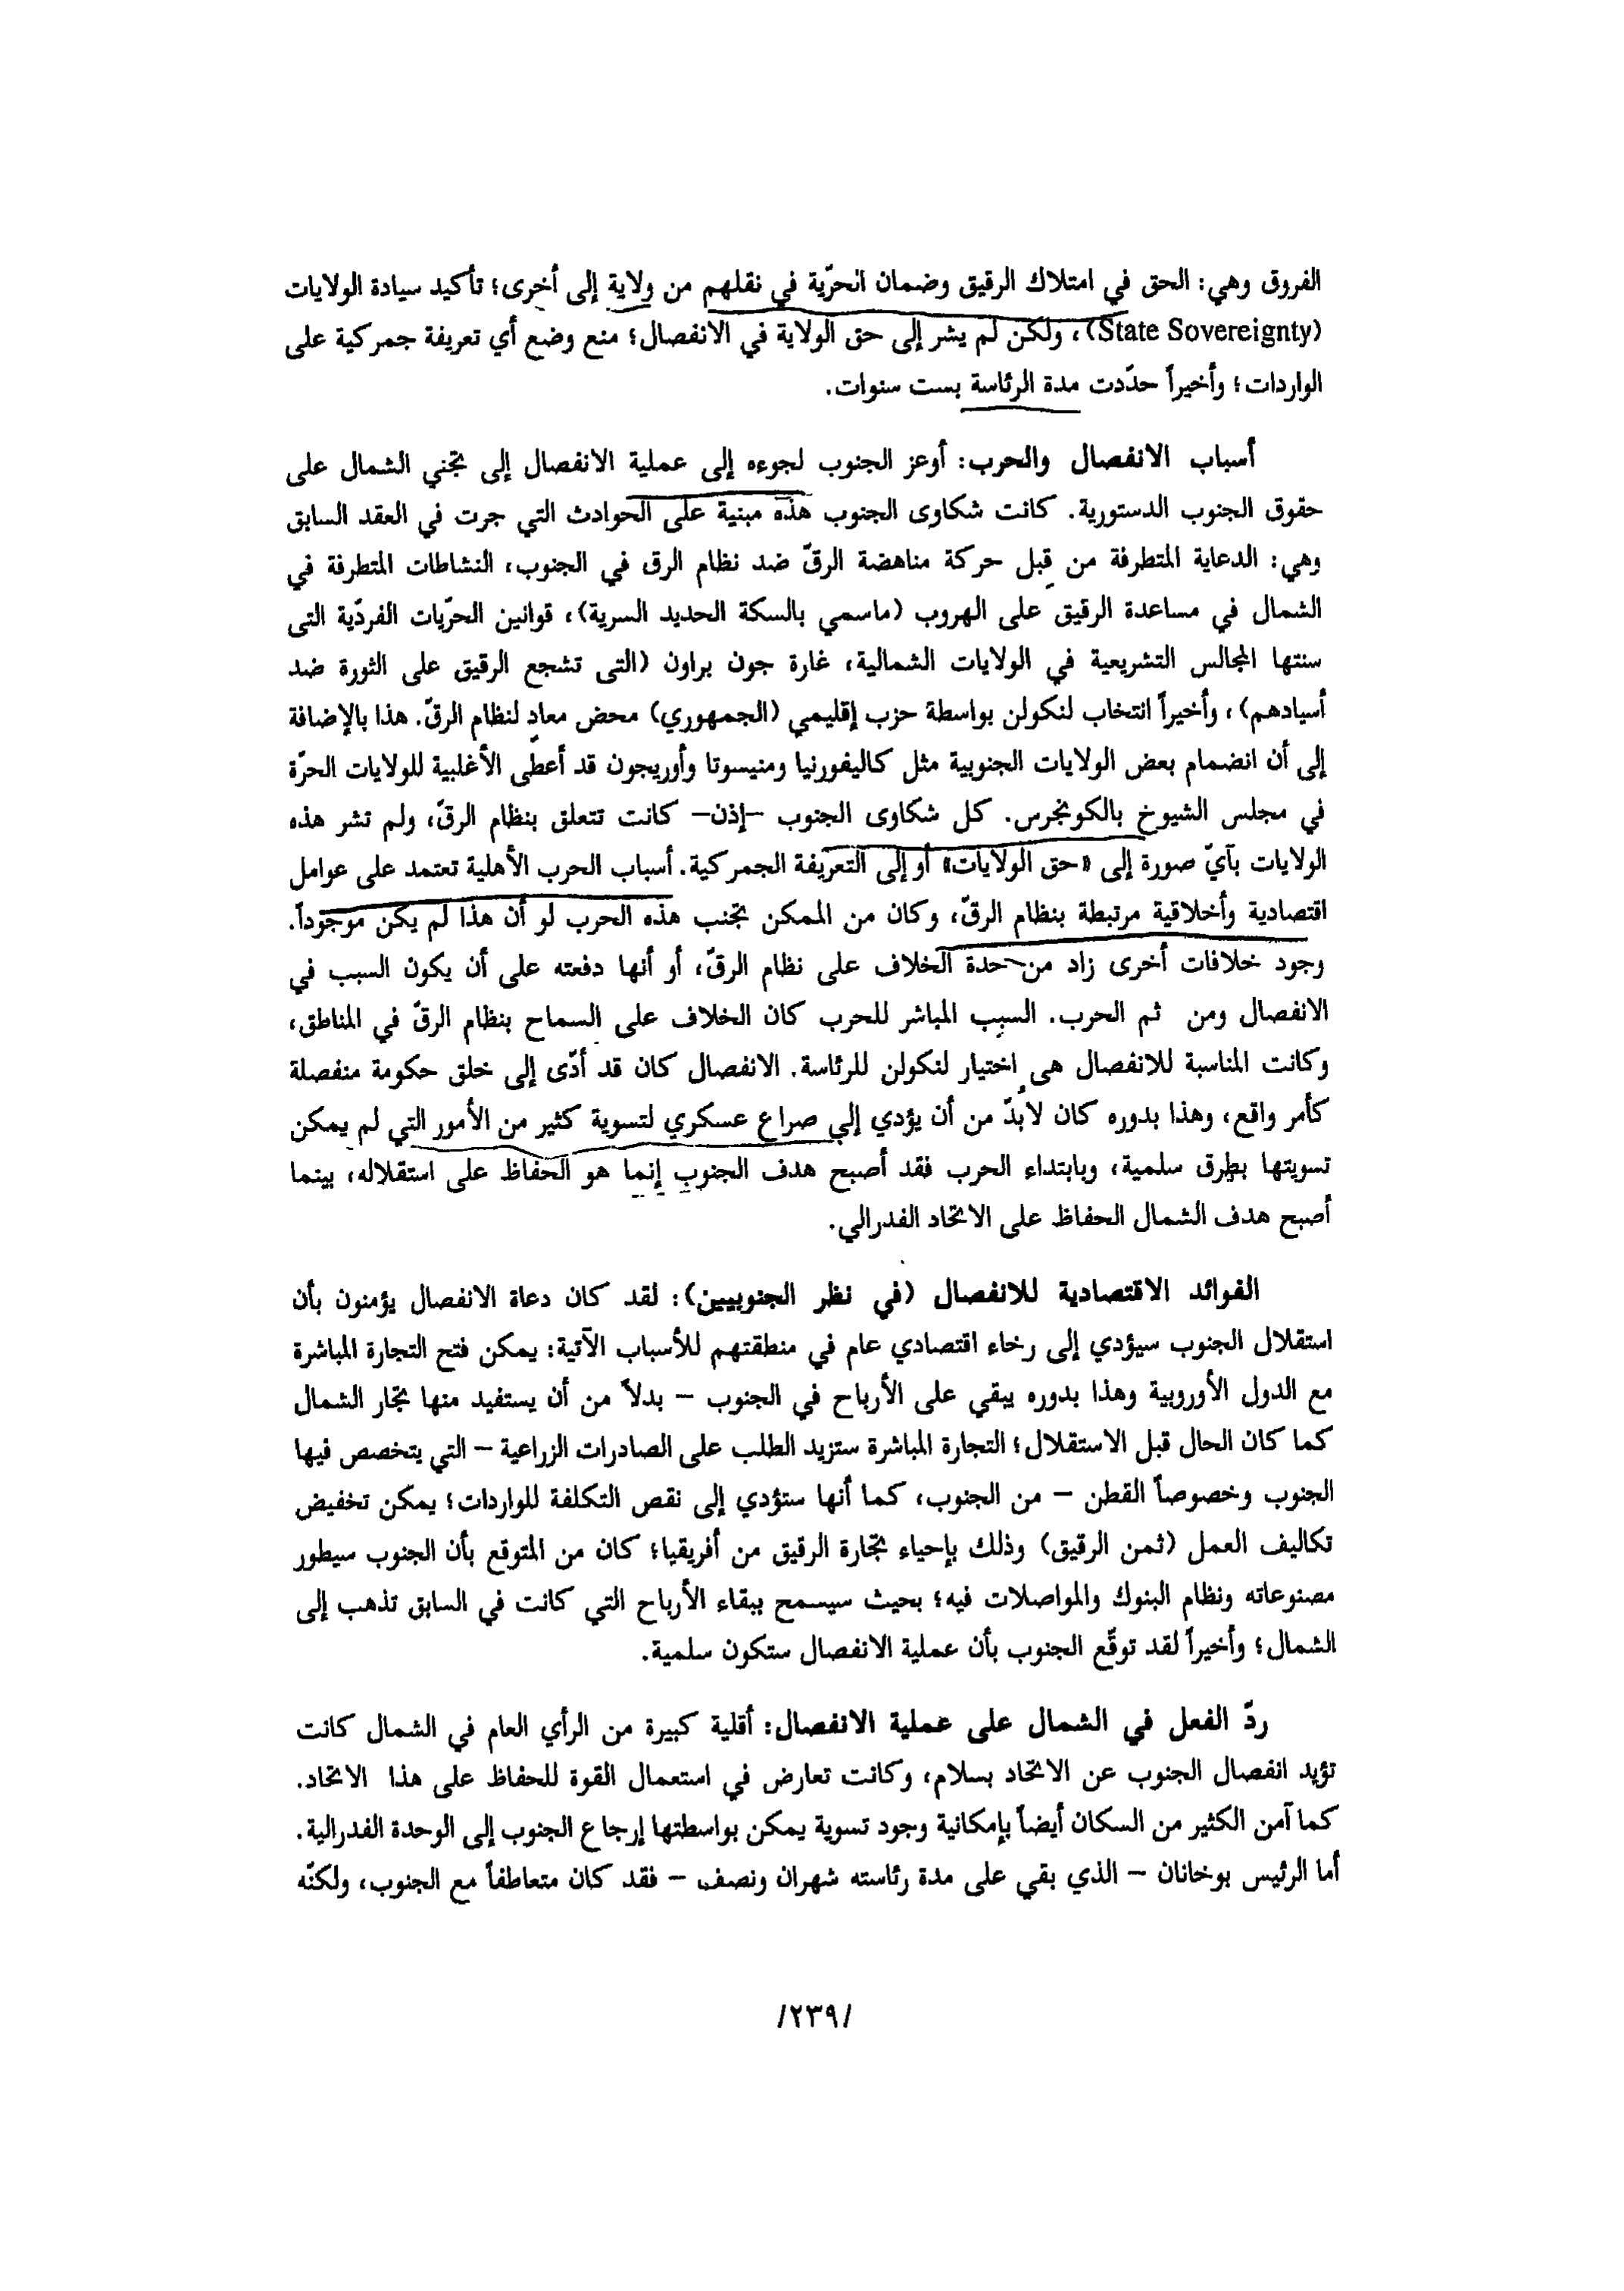 الفروق وهي: الحق في امتلاك الرقيق وضمان الحرّية في نقلهم من ولاية إلى أخرى؛ تأكيد سيادة الولايات
(State Sovereignty)، ولكن لم يشر إلى حق الولاية في الانفصال؛ منع وضع أي تعريفة جمركية على
الواردات؛ وأخيراً حدّدت مدة الرئاسة بست سنوات.
أسباب الانفصال والحرب: أوعز الجنوب لجوءه إلى عملية الانفصال إلى تجني الشمال على
حقوق الجنوب الدستورية. كانت شكاوى الجنوب هذه مبنية على الحوادث التي جرت في العقد السابق
وهي: الدعاية المتطرفة من قبل حركة مناهضة الرقّ ضد نظام الرق في الجنوب، النشاطات المتطرفة في
الشمال في مساعدة الرقيق على الهروب (ماسمي بالسكة الحديد السرية)، قوانين الحرّيات الفردّية التى
سنتها المجالس التشريعية في الولايات الشمالية، غارة جون براون (التى تشجع الرقيق على الثورة ضد
أسيادهم)، وأخيراً انتخاب لنكولن بواسطة حزب إقليمي (الجمهوري) محض معادٍ لنظام الرقّ. هذا بالإضافة
إلى أن انضمام بعض الولايات الجنوبية مثل كاليفورنيا ومنيسوتا وأوريجون قد أعطى الأغلبية للولايات الحرّة
في مجلس الشيوخ بالكونجرس. كل شكاوى الجنوب –إذن– كانت تتعلق بنظام الرقّ، ولم تشر هذه
الولايات بآيّ صورة إلى «حق الولايات» أو إلى التعريفة الجمركية. أسباب الحرب الأهلية تعتمد على عوامل
اقتصادية وأخلاقية مرتبطة بنظام الرقّ، وكان من الممكن تجنب هذه الحرب لو أن هذا لم يكن موجوداً.
وجود خلافات أخرى زاد من حدة الخلاف على نظام الرقّ، أو أنها دفعته على أن يكون السبب في
الانفصال ومن ثم الحرب. السبب المباشر للحرب كان الخلاف على السماح بنظام الرقّ في المناطق،
وكانت المناسبة للانفصال هى اختيار لنكولن للرئاسة. الانفصال كان قد أدّى إلى خلق حكومة منفصلة
كأمر واقع، وهذا بدوره كان لابُدّ من أن يؤدي إلى صراع عسكري لتسوية كثير من الأمور التي لم يمكن
تسويتها بطرق سلمية، وبابتداء الحرب فقد أصبح هدف الجنوب إنما هو الحفاظ على استقلاله، بينما
أصبح هدف الشمال الحفاظ على الاتحاد الفدرالي.
الفوائد الاقتصادية للانفصال (في نظر الجنوبيين): لقد كان دعاة الانفصال يؤمنون بأن
استقلال الجنوب سيؤدي إلى رخاء اقتصادي عام في منطقتهم للأسباب الآتية: يمكن فتح التجارة المباشرة
مع الدول الأوروبية وهذا بدوره يبقي على الأرباح في الجنوب – بدلاً من أن يستفيد منها تجّار الشمال
كما كان الحال قبل الاستقلال؛ التجارة المباشرة ستزيد الطلب على الصادرات الزراعية – التي يتخصص فيها
الجنوب وخصوصاً القطن – من الجنوب، كما أنها ستؤدي إلى نقص التكلفة للواردات؛ يمكن تخفيض
تكاليف العمل (ثمن الرقيق) وذلك بإحياء تجارة الرقيق من أفريقيا؛ كان من المتوقع بأن الجنوب سيطور
مصنوعاته ونظام البنوك والمواصلات فيه؛ بحيث سيسمح ببقاء الأرباح التي كانت في السابق تذهب إلى
الشمال؛ وأخيراً لقد توقّع الجنوب بأن عملية الانفصال ستكون سلمية.
ردّ الفعل في الشمال على عملية الانفصال: أقلية كبيرة من الرأي العام في الشمال كانت
تؤيد انفصال الجنوب عن الاتحاد بسلام، وكانت تعارض في استعمال القوة للحفاظ على هذا الاتحاد.
كما آمن الكثير من السكان أيضاً بإمكانية وجود تسوية يمكن بواسطتها إرجاع الجنوب إلى الوحدة الفدرالية.
أما الرئيس بوخانان – الذي بقي على مدة رئاسته شهران ونصف – فقد كان متعاطفاً مع الجنوب، ولكنّه
/٢٣٩/